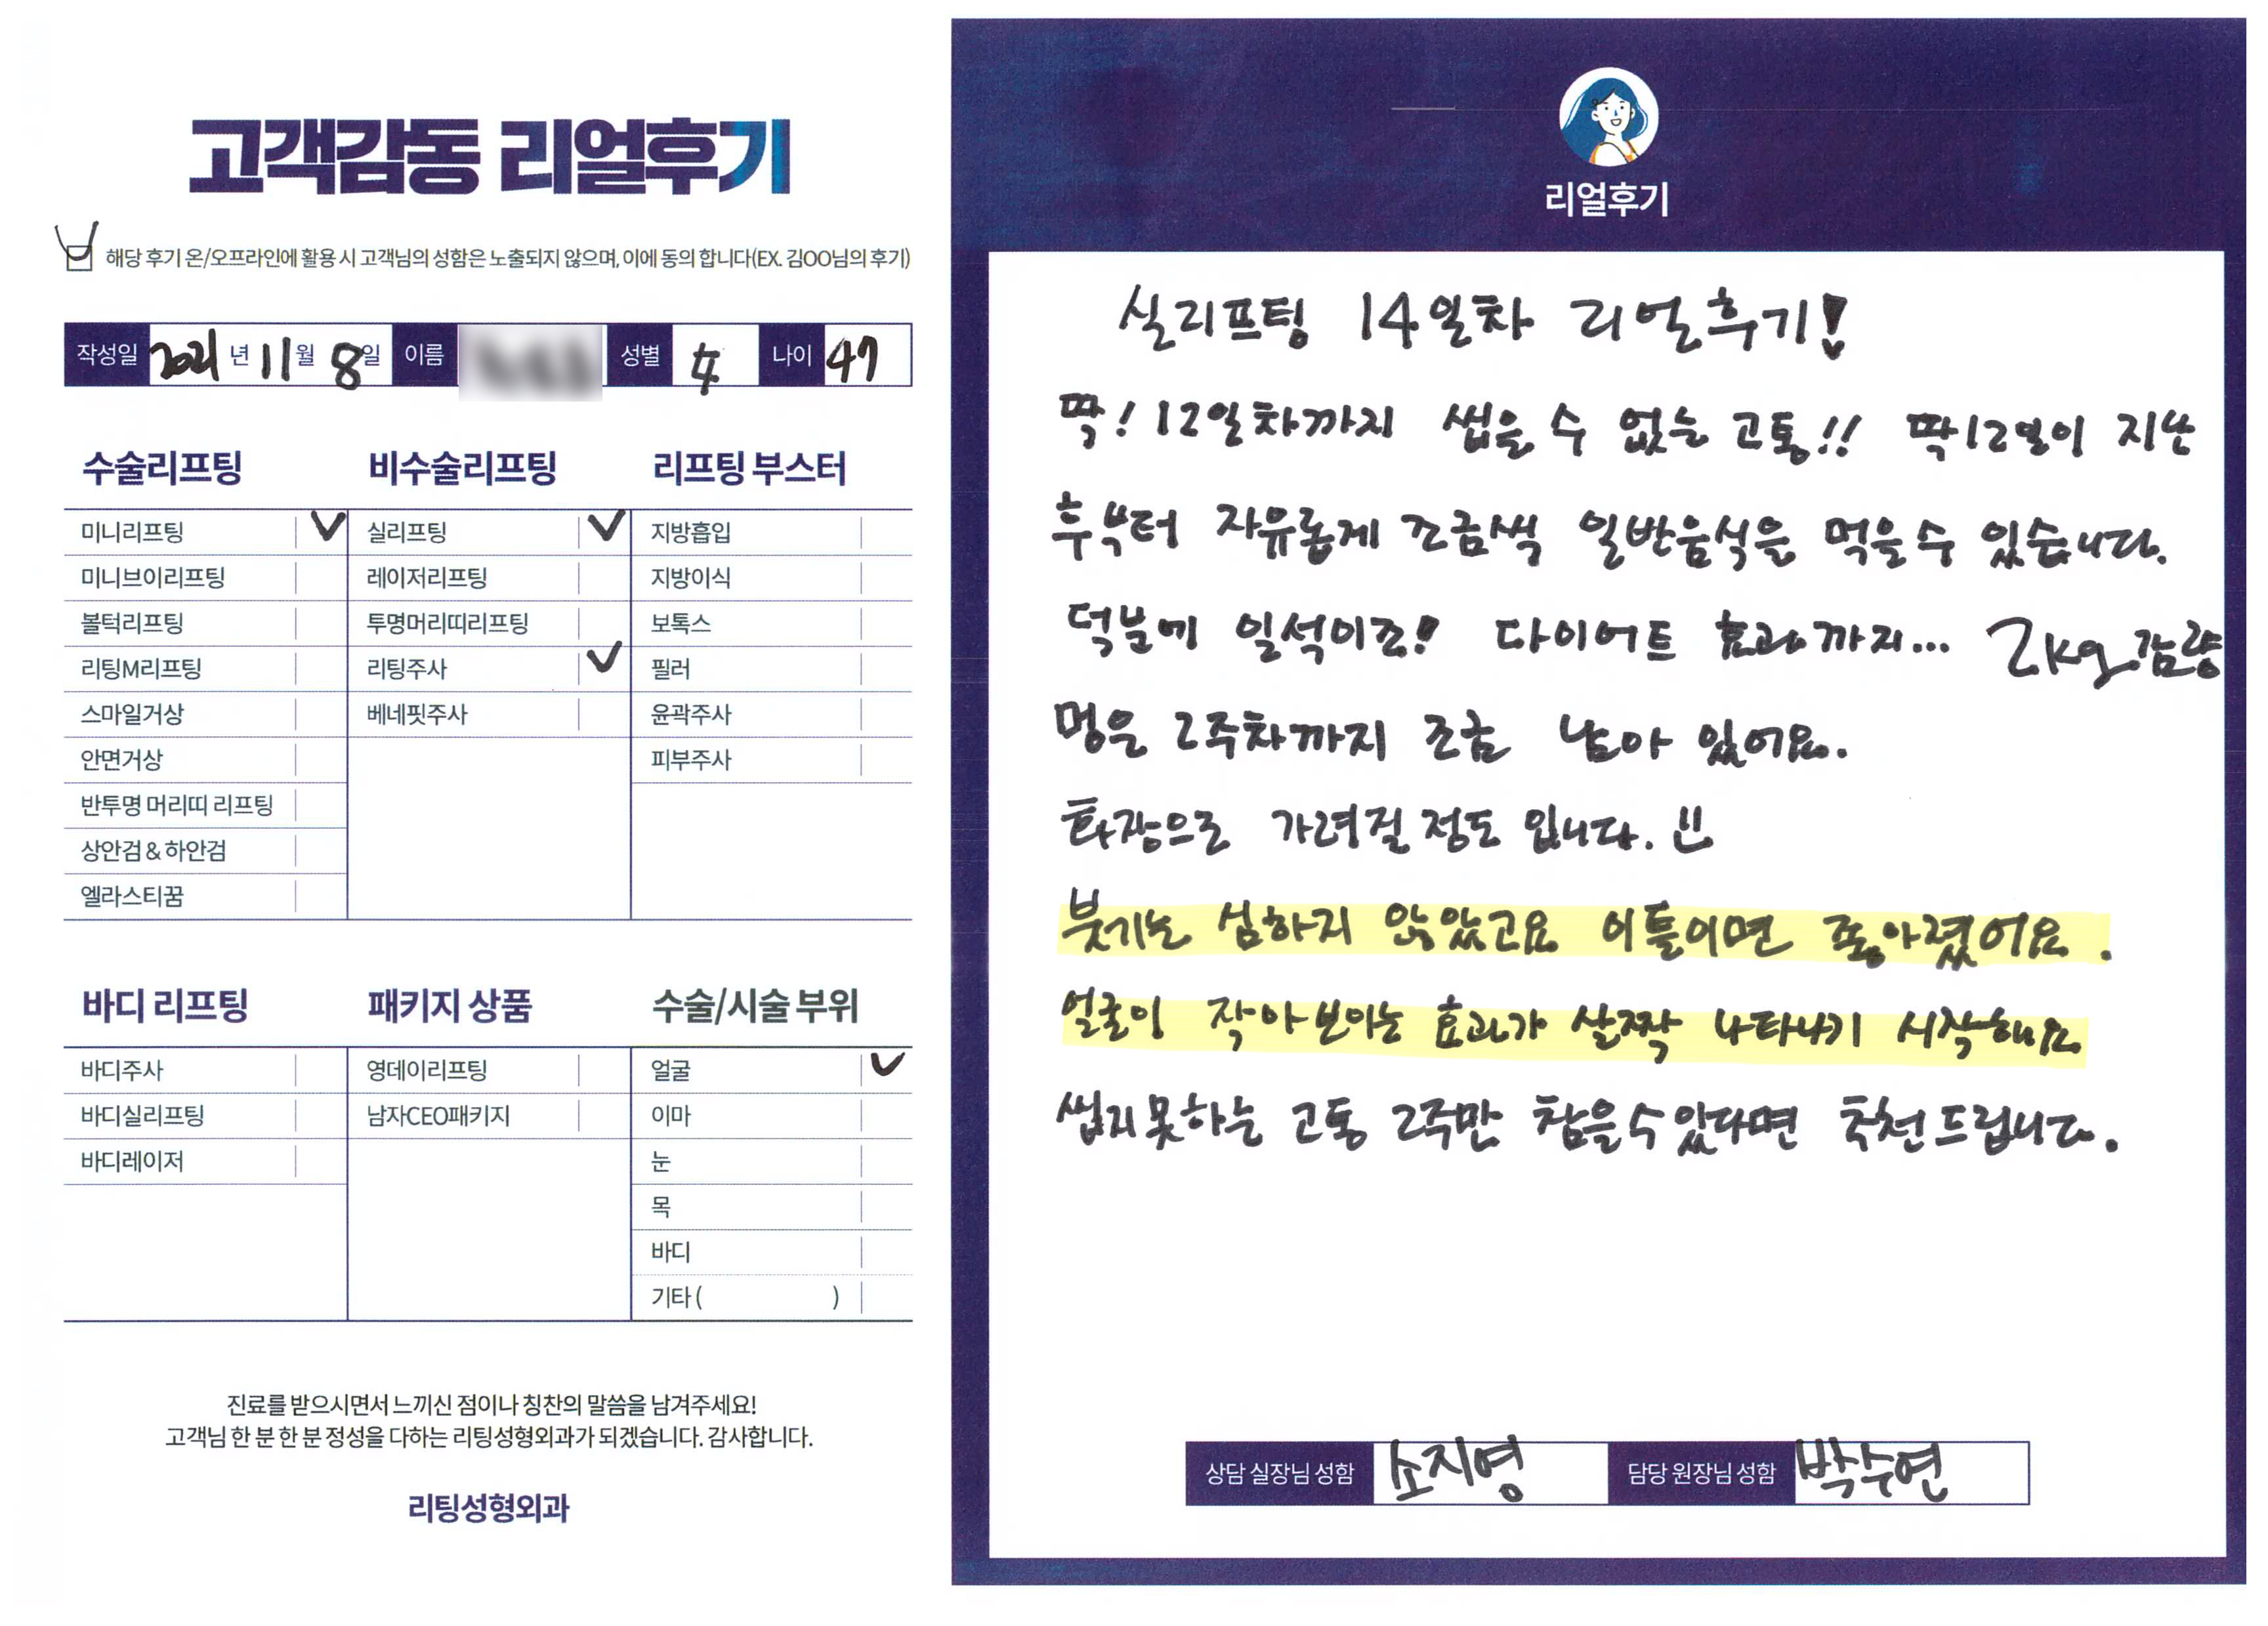 고객감동 리얼후기
해당 후기 온/오프라인에 활용 시 고객님의 성함은 노출되지 않으며, 이에 동의 합니다(EX. 김OO님의 후기)
작성일 2021 년 11 월 8 일 이름 성별 女 나이 47
수술리프팅
미니리프팅 ✓
미니브이리프팅
볼턱리프팅
리팅M리프팅
스마일거상
안면거상
반투명 머리띠 리프팅
상안검 & 하안검
엘라스티꿈
비수술리프팅
실리프팅 ✓
레이저리프팅
투명머리띠리프팅
리팅주사 ✓
베네핏주사
리프팅 부스터
지방흡입
지방이식
보톡스
필러
윤곽주사
피부주사
바디 리프팅
바디주사
바디실리프팅
바디레이저
패키지 상품
영데이리프팅
남자CEO패키지
수술/시술 부위
얼굴 ✓
이마
눈
목
바디
기타 ( )
진료를 받으시면서 느끼신 점이나 칭찬의 말씀을 남겨주세요!
고객님 한 분 한 분 정성을 다하는 리팅성형외과가 되겠습니다. 감사합니다.
리팅성형외과
리얼후기
실리프팅 14일차 리얼후기!
딱! 12일차까지 씹을 수 없는 고통!! 딱12일이 지난
후부터 자유롭게 조금씩 일반음식을 먹을수 있습니다.
덕분에 일석이조! 다이어트 효과까지... 2kg 감량
멍은 2주차까지 조금 남아 있어요.
화장으로 가려질 정도 입니다.
붓기는 심하지 않았고요 이틀이면 좋아졌어요.
얼굴이 작아보이는 효과가 살짝 나타나기 시작해요
씹지못하는 고통 2주만 참을수있다면 추천드립니다.
상담 실장님 성함 소지영 담당 원장님 성함 박수연